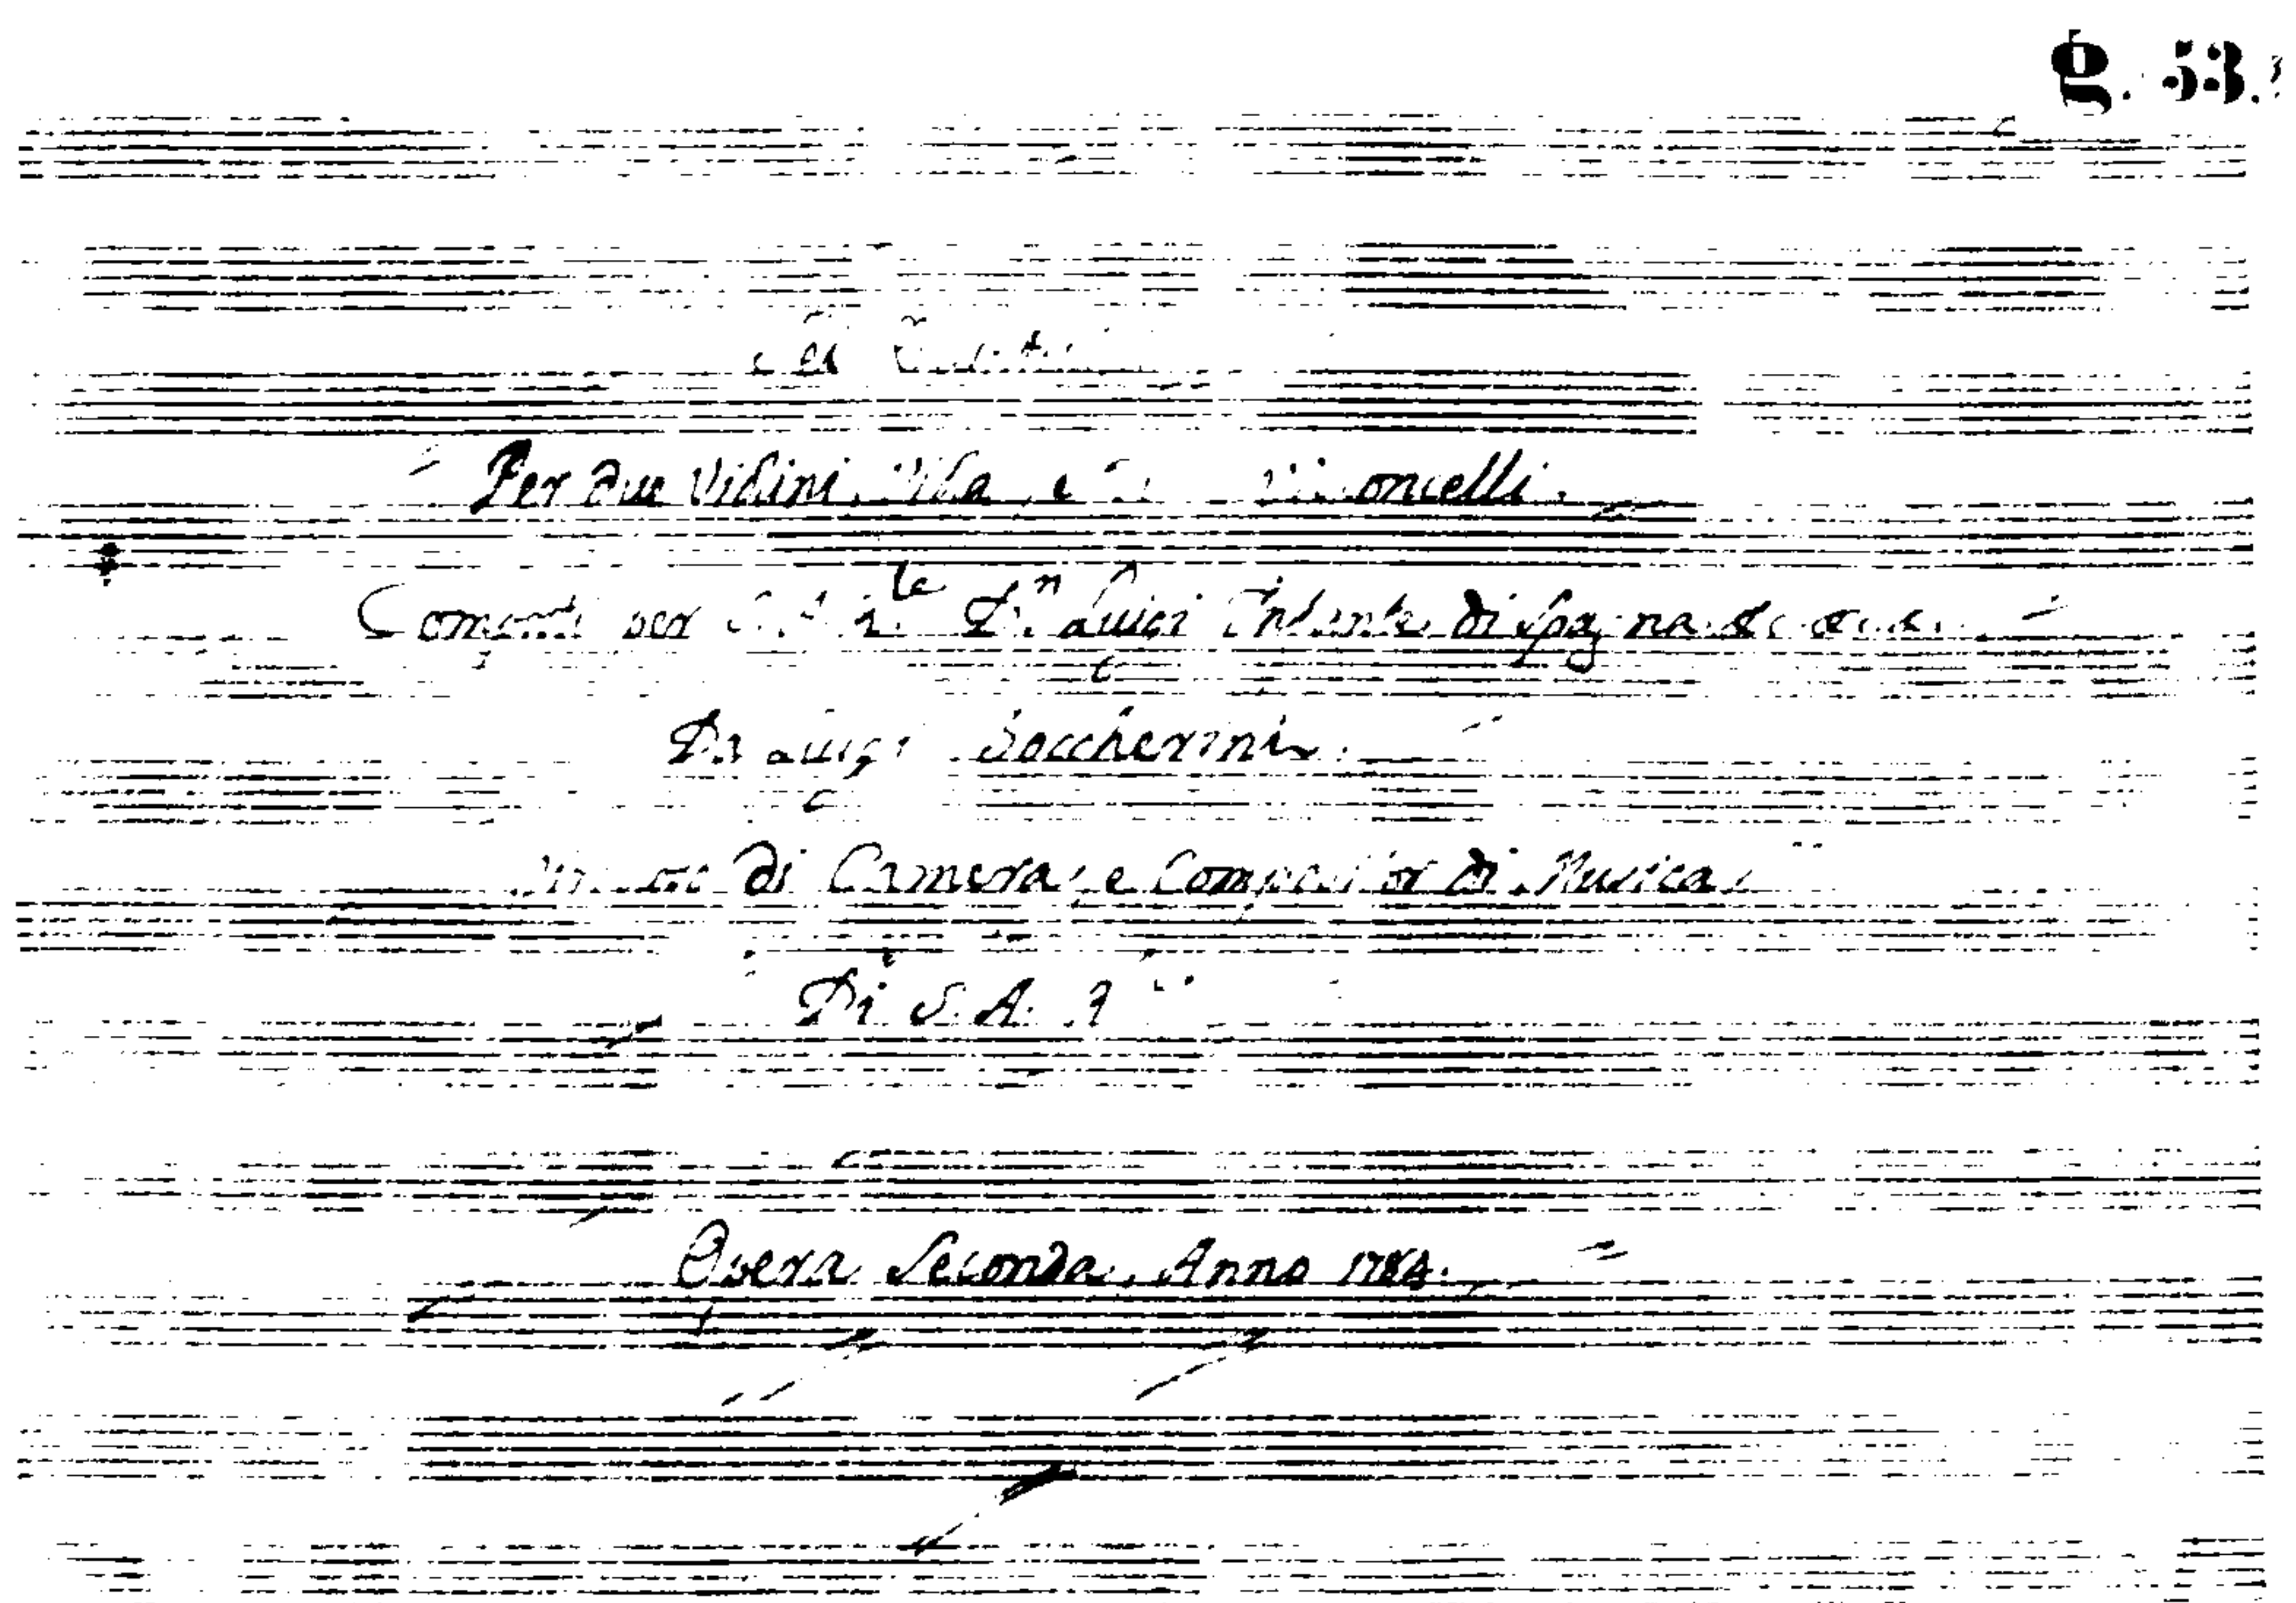 g. 53.
Per due Violini, Viola, e Violoncelli.
Composti per S. A. R.le D.n Luigi Infante di Spagna
Da Luigi Boccherini.
di Camera, e Compositor di Musica
Di S. A. R
Opera Seconda. Anno 1784.